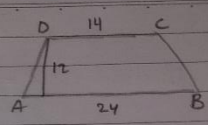 D 14 C
12
A 24 B